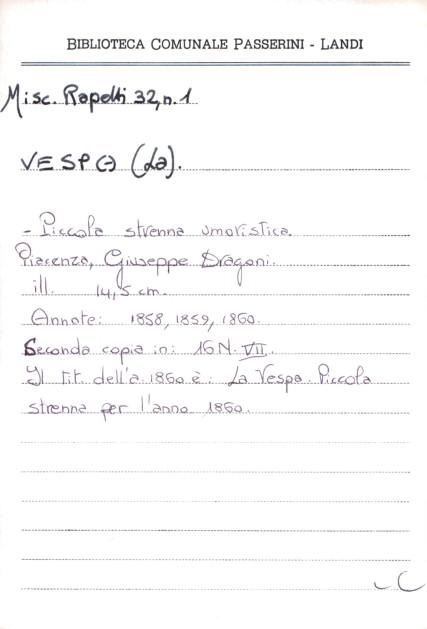 BIBLIOTECA COMUNALE PASSERINI - LANDI
Misc. Rapetti 32, n. 1
VESPA (La).
- Piccola strenna umoristica.
Piacenza, Giuseppe Dragoni.
ill. 14,5 cm.
Annate: 1858, 1859, 1860.
Seconda copia in: 16 N. VII.
Il tit. dell'a. 1860 è: La Vespa. Piccola
strenna per l'anno 1860.